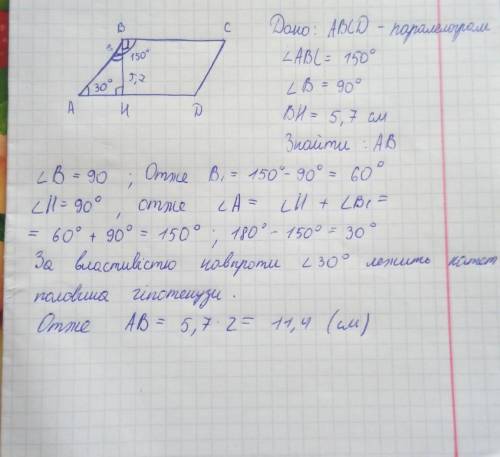 B
C
3
150°
5,2
30°
A
H
D
Дано: ABCD - паралелограм
∠ABC = 150°
∠B = 90°
BH = 5,7 см
Знайти : AB
∠B = 90 ; Отже B₁ = 150° - 90° = 60°
∠H = 90° , отже ∠A = ∠H + ∠B₁ =
= 60° + 90° = 150° ; 180° - 150° = 30°
За властивістю навпроти ∠30° лежить катет
половина гіпотенузи.
Отже AB = 5,7 · 2 = 11,4 (см)